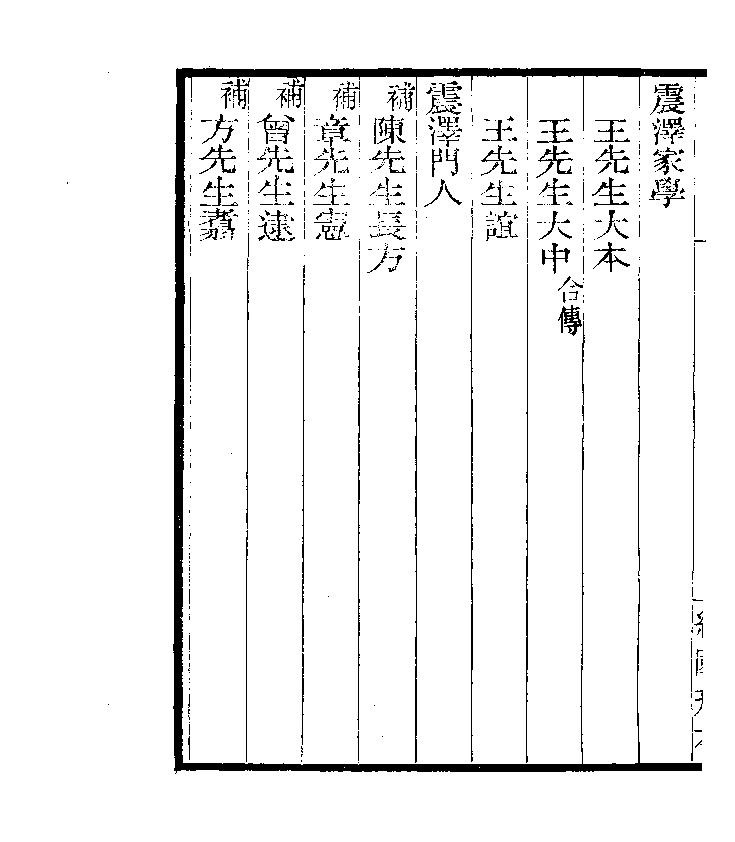 震澤家學
王先生大本
王先生大中合傳
王先生誼
震澤門人
補陳先生長方
補章先生憲
補曾先生逮
補方先生翥